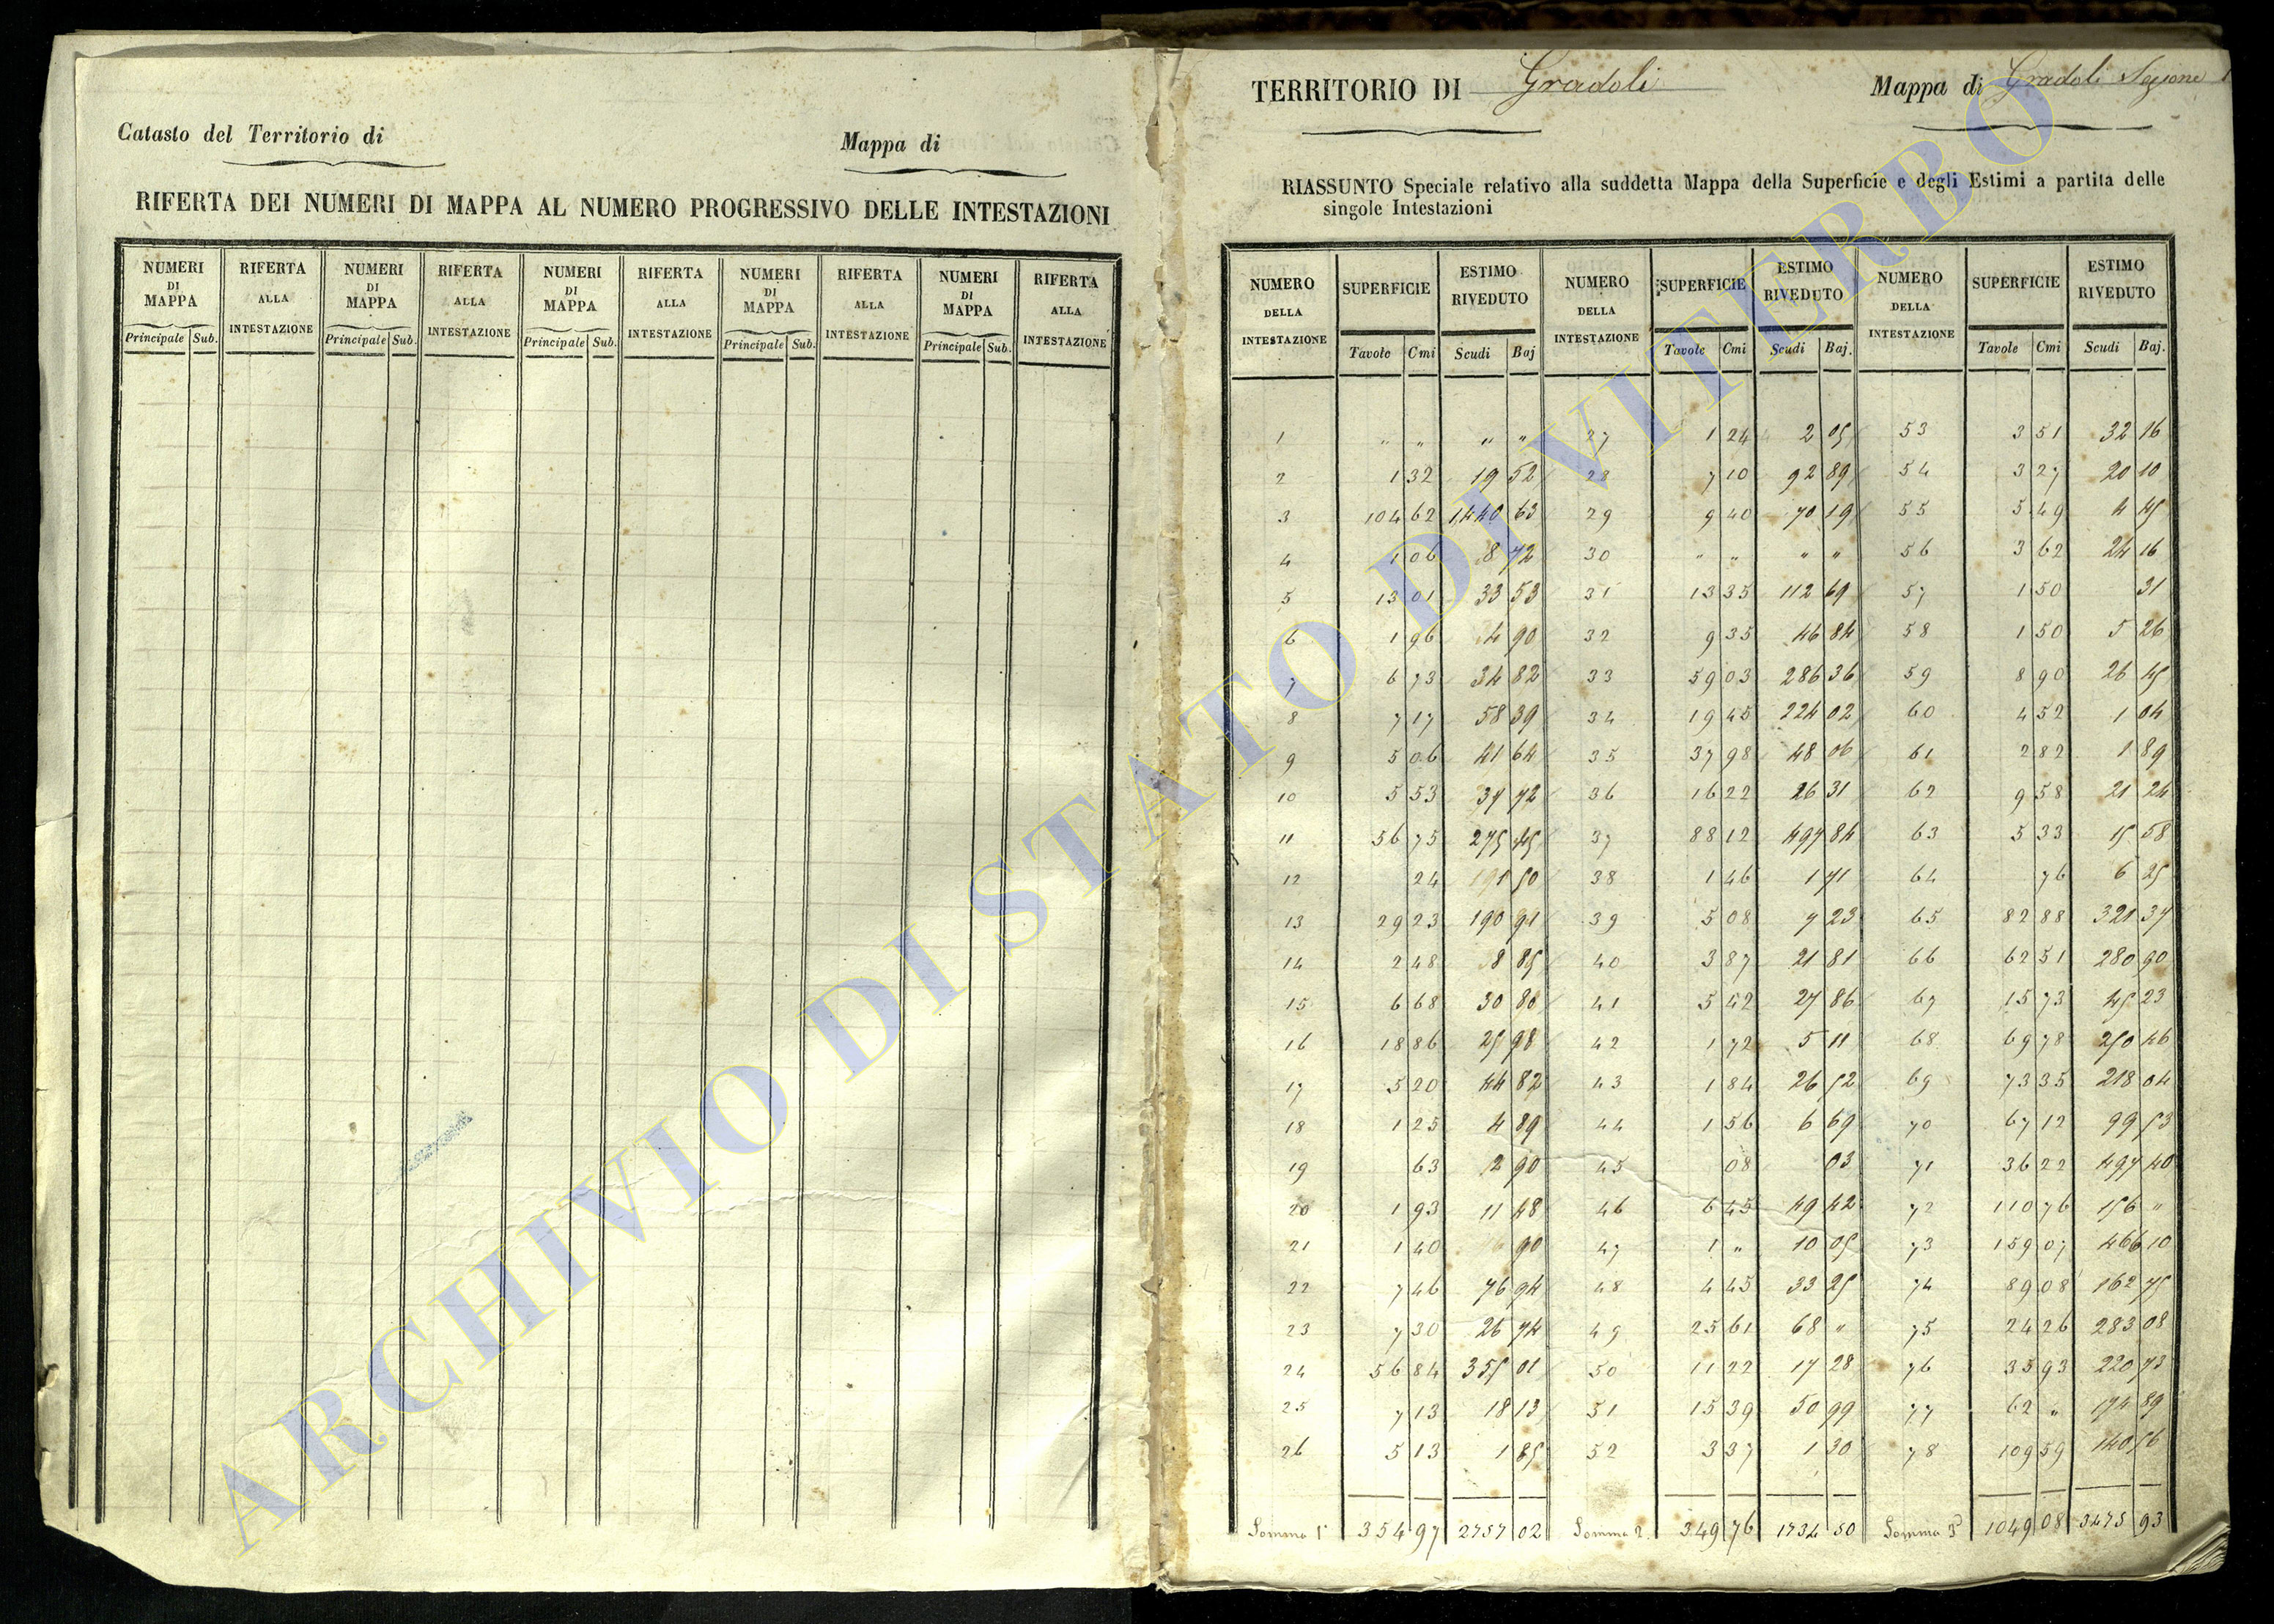 Catasto del Territorio di
Mappa di
RIFERTA DEI NUMERI DI MAPPA AL NUMERO PROGRESSIVO DELLE INTESTAZIONI
NUMERI DI MAPPA RIFERTA ALLA INTESTAZIONE NUMERI DI MAPPA RIFERTA ALLA INTESTAZIONE NUMERI DI MAPPA RIFERTA ALLA INTESTAZIONE NUMERI DI MAPPA RIFERTA ALLA INTESTAZIONE NUMERI DI MAPPA RIFERTA ALLA INTESTAZIONE
Principale Sub. Principale Sub. Principale Sub. Principale Sub. Principale Sub.
TERRITORIO DI Gradoli
Mappa di Gradoli Sezione 1
RIASSUNTO Speciale relativo alla suddetta Mappa della Superficie e degli Estimi a partita delle
singole Intestazioni
NUMERO DELLA INTESTAZIONE SUPERFICIE ESTIMO RIVEDUTO NUMERO DELLA INTESTAZIONE SUPERFICIE ESTIMO RIVEDUTO NUMERO DELLA INTESTAZIONE SUPERFICIE ESTIMO RIVEDUTO
Tavole Cmi Scudi Baj Tavole Cmi Scudi Baj. Tavole Cmi Scudi Baj.
1 " " " " 27 1 24 2 05 53 3 51 32 16
2 1 32 19 52 28 7 10 92 89 54 3 27 20 10
3 104 62 1,440 63 29 9 40 70 19 55 5 49 4 45
4 1 06 8 72 30 " " " " 56 3 62 24 16
5 13 01 33 53 31 13 35 112 69 57 1 50 31
6 1 96 4 90 32 9 35 46 84 58 1 50 5 26
7 6 73 34 82 33 59 03 286 36 59 8 90 26 45
8 7 17 58 39 34 19 45 224 02 60 4 52 1 04
9 5 06 41 64 35 37 98 48 06 61 2 82 1 89
10 5 53 37 72 36 16 22 26 31 62 9 58 21 24
11 56 75 275 45 37 88 12 497 84 63 5 33 15 58
12 24 50 38 1 46 1 71 64 76 6 25
13 29 23 190 91 39 5 08 7 23 65 82 88 321 37
14 2 48 8 85 40 3 87 21 81 66 62 51 280 90
15 6 68 30 86 41 5 42 27 86 67 15 73 45 23
16 18 86 25 98 42 1 72 5 11 68 69 78 250 46
17 5 20 44 82 43 1 84 26 52 69 73 35 218 04
18 1 25 4 89 44 1 56 6 69 70 67 12 99 53
19 63 2 90 45 08 03 71 36 22 497 40
20 1 93 11 48 46 6 45 49 42 72 110 76 156 "
21 1 40 90 47 1 " 10 05 73 159 07 466 10
22 7 46 76 94 48 4 45 33 25 74 89 08 162 75
23 7 30 26 74 49 25 61 68 " 75 24 26 283 08
24 56 84 355 01 50 11 22 17 28 76 35 93 220 73
25 7 13 18 13 51 15 39 50 99 77 62 " 174 89
26 5 13 1 85 52 3 37 1 30 78 109 59 140 56
Somma 1ª 354 97 2757 02 Somma 2. 349 76 1734 50 Somma 3ª 1049 08 3475 93
ARCHIVIO DI STATO DI VITERBO